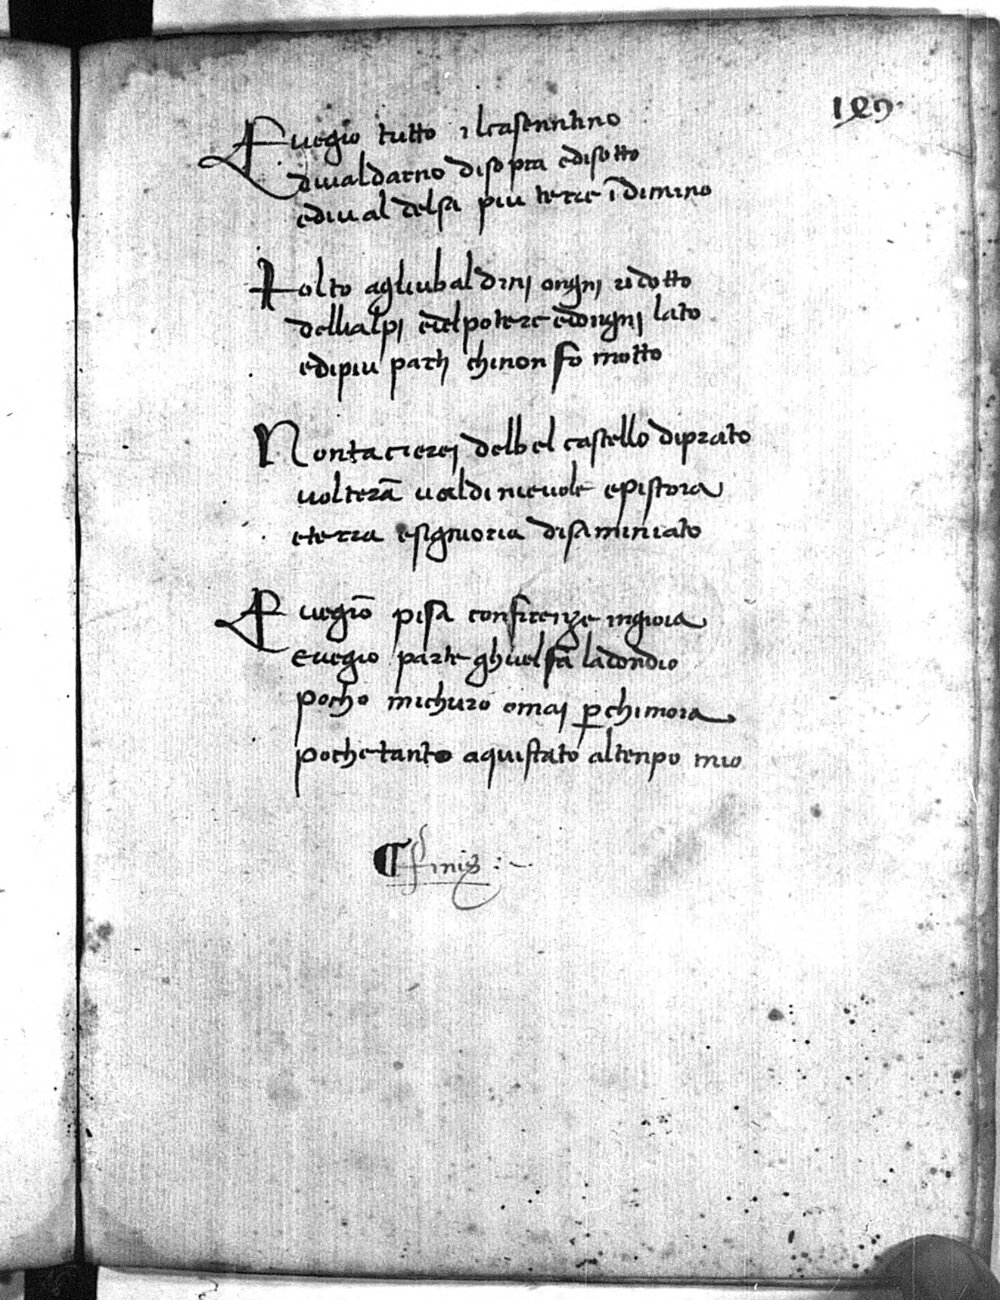 189
Euegio tutto ilcasenntino
diualdarno disopra edisotto
ediual delsa piu terre īdimino
Tolto agliubaldinj ongnj ridotto
dellialpi edelpotere edongnj lato
edipiu parti chinon fo motto
Nontacierej delbel castello diprato
uolterā ualdinieuole epistoia
eterra esignioria disaminiato
Euegiō pisa confirenze ingioia
euegio parte ghuelfā ladondio
pocho michuro omaj ꝑchimoia
poche tanto aquistato altenpo mio
finis